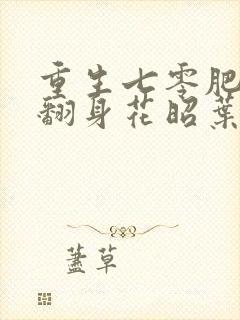 重生七零肥
翻身花昭葉
蓋草